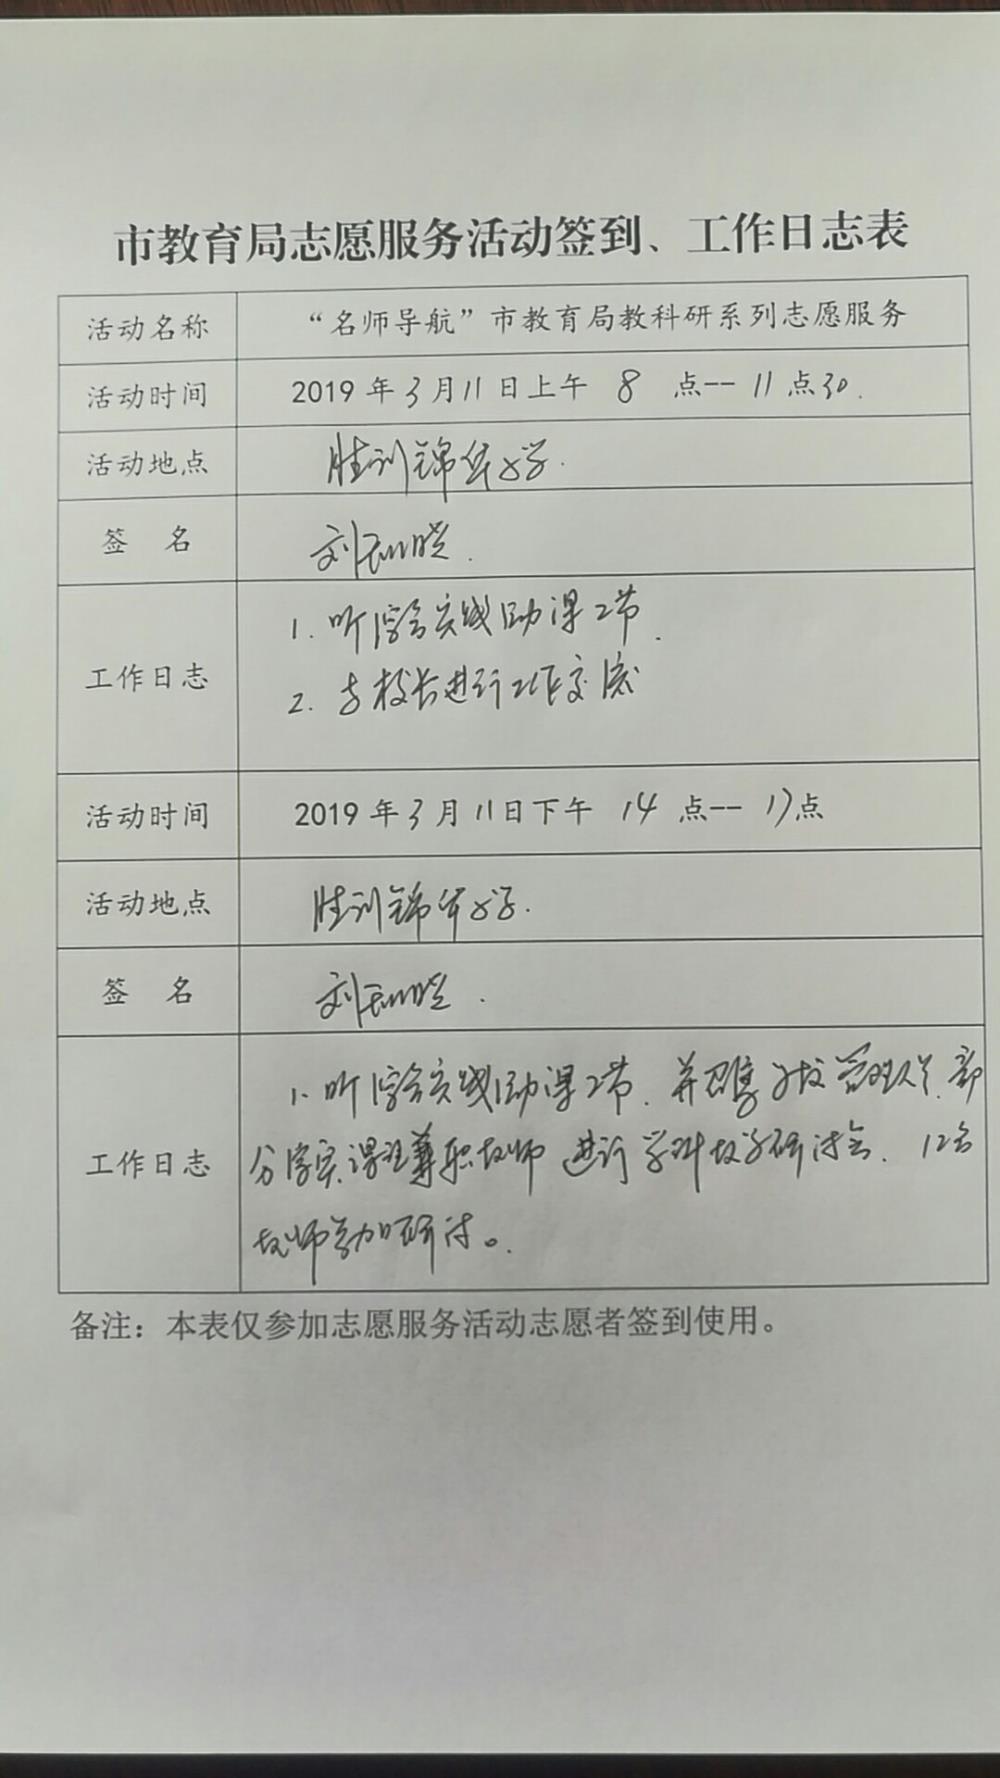 市教育局志愿服务活动签到、工作日志表
活动名称 “名师导航”市教育局教科研系列志愿服务
活动时间 2019年3月11日上午 8 点--11点30.
活动地点 胜利锦华小学.
签 名 刘
工作日志
1. 听综合实践活动课2节.
2. 与校长进行工作交流
活动时间 2019年3月11日下午 14 点--17点
活动地点 胜利锦华小学.
签 名 刘
工作日志
1. 听综合实践活动课2节. 并召集学校管理人员.部
分综实课程兼职教师 进行学科教学研讨会. 12名
教师参加研讨。
备注：本表仅参加志愿服务活动志愿者签到使用。